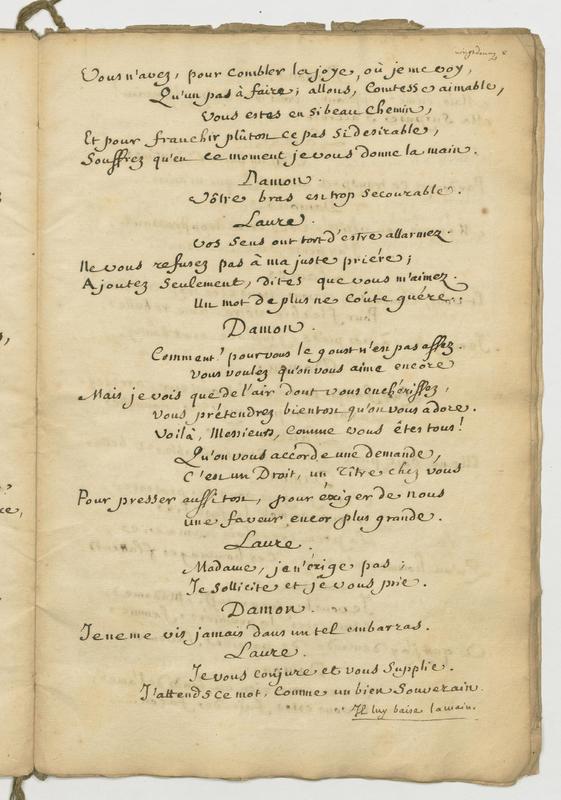 Vous n'avez, pour combler la joye, où je me voy,
Qu'un pas à faire; allons, Comtesse aimable,
Vous estes en si beau chemin,
Et pour franchir plûton ce pas si desirable,
Souffrez qu'en ce moment je vous donne la main.
Damon.
Vôtre bras est trop secourable.
Laure.
Vos sens ont tort d'estre allarmez.
Ne vous refusez pas à ma juste priére;
Ajoutez seulement, dites que vous m'aimez.
Un mot de plus ne coute guére.
Damon.
Comment? pour vous le goust n'est pas assez.
Vous voulez qu'on vous aime encore
Mais je vois que de l'air dont vous enchérissez,
Vous prétendrez bientost qu'on vous adore.
Voilà, Messieurs, comme vous êtes tous!
Qu'on vous accorde une demande,
C'est un Droit, un Titre chez vous
Pour presser aussitost, pour éxiger de nous
une faveur encor plus grande.
Laure.
Madame, je n'exige pas;
Je sollicite et je vous prie.
Damon.
Je ne me vis jamais dans un tel embarras.
Laure.
Je vous conjure et vous supplie.
J'attends ce mot, comme un bien souverain.
Il luy baise la main.